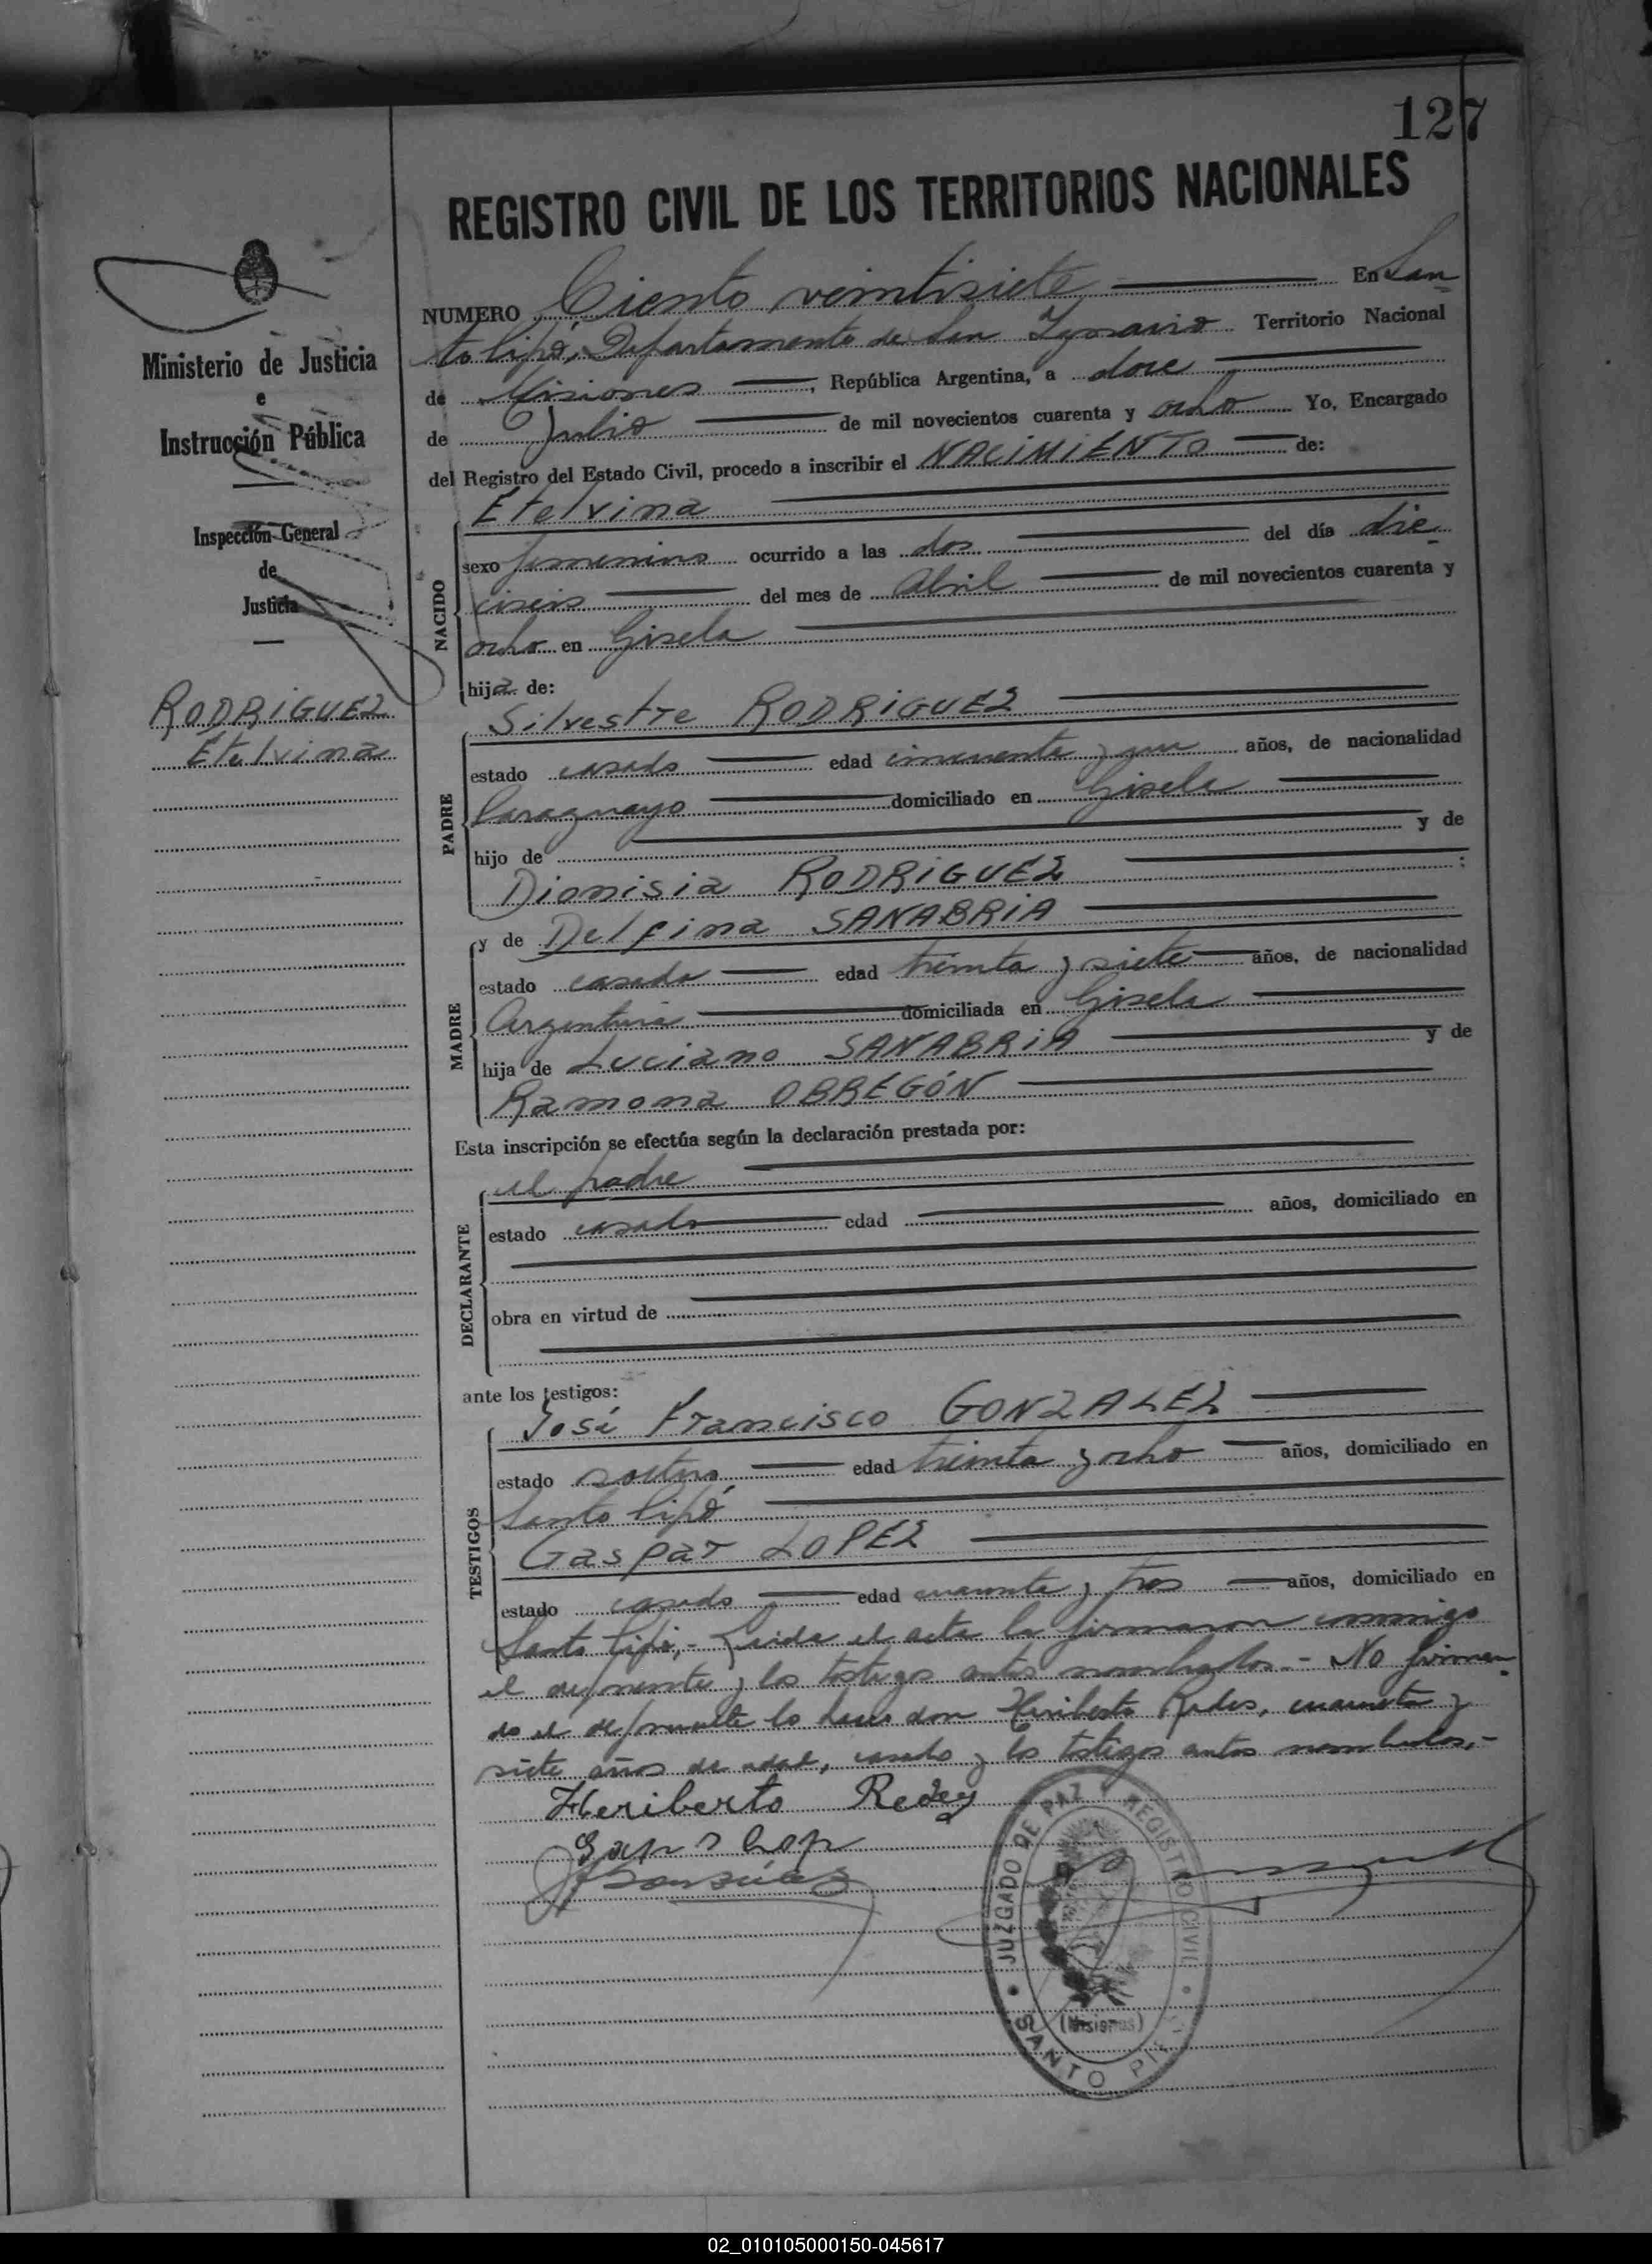 127
REGISTRO CIVIL DE LOS TERRITORIOS NACIONALES
Ministerio de Justicia
e
Instrucción Pública
Inspección General
de
Justicia
RODRIGUEZ
Etelvina
NUMERO Ciento veintisiete En San
to Pipó, Departamento de San Ignacio Territorio Nacional
de Misiones, República Argentina, a doce
de Julio de mil novecientos cuarenta y ocho Yo, Encargado
del Registro del Estado Civil, procedo a inscribir el NACIMIENTO de:
NACIDO
Etelvina
sexo femenino ocurrido a las dos del día die
ciseis del mes de Abril de mil novecientos cuarenta y
ocho en Gisela
hija de:
PADRE
Silvestre RODRIGUEZ
estado casado edad cincuenta y un años, de nacionalidad
Paraguayo domiciliado en Gisela
hijo de y de
Dionisia RODRIGUEZ :
MADRE
y de Delfina SANABRIA
estado casada edad treinta y siete años, de nacionalidad
Argentina domiciliada en Gisela
hija de Luciano SANABRIA y de
Ramona OBREGÓN
Esta inscripción se efectúa según la declaración prestada por:
DECLARANTE
el padre
estado casado edad años, domiciliado en
obra en virtud de
ante los testigos:
TESTIGOS
José Francisco GONZALEZ
estado soltero edad treinta y ocho años, domiciliado en
Santo Pipó
Gaspar LOPEZ
estado casado edad cuarenta y tres años, domiciliado en
Santo Pipó.- Leida el acta la firmaron conmigo
el deponente y los testigos antes nombrados.- No firman
do el deponente lo hace don Heriberto Redes, cuarenta y
siete años de edad, casado y los testigos antes nombrados.-
Heriberto Redey
González
JUZGADO DE PAZ Y REGISTRO CIVIL
(Misiones)
SANTO PIPÓ
02_010105000150-045617